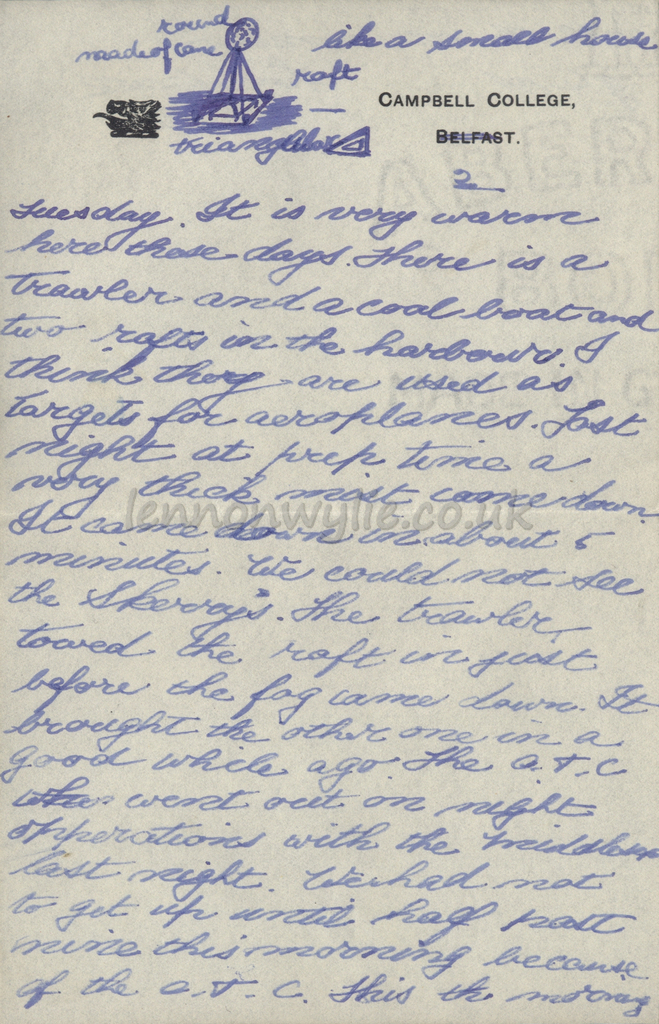 round
made of cane
like a small house
raft
triangular
CAMPBELL COLLEGE,
BELFAST.
2
Tuesday. It is very warm
here these days. There is a
trawler and a coal boat and
two rafts in the harbour. I
think they are used as
targets for aeroplanes. Last
night at prep time a
very thick mist came down.
It came down in about 5
minutes. We could not see
the Skerry's. The trawler
towed the raft in just
before the fog came down. It
brought the other one in a
good while ago. The A.T.C
went out on night
opperations with the
last night. We had not
to get up until half past
nine this morning because
of the A.T.C. This the morning
lennonwylie.co.uk